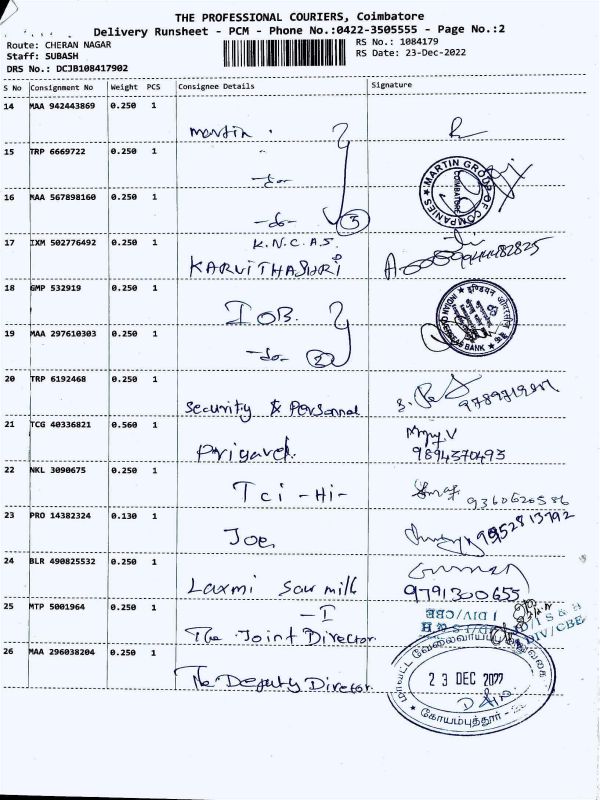 THE PROFESSIONAL COURIERS, Coimbatore
Delivery Runsheet - PCM - Phone No.:0422-3505555 - Page No.:2
Route: CHERAN NAGAR
RS No.: 1084179
Staff: SUBASH
RS Date: 23-Dec-2022
DRS No.: DCJB108417902
S No Consignment No Weight PCS Consignee Details Signature
14 MAA 942443869 0.250 1
Martin
15 TRP 6669722 0.250 1
-do-
MARTIN GROUP OF COMPANIES
COIMBATORE
16 MAA 567898160 0.250 1
-do- 3
17 IXM 502776492 0.250 1
K.N.C.A.S.
18 GMP 532919 0.250 1
IOB.
इण्डियन ओवरसीज़ बैंक
INDIAN OVERSEAS BANK
19 MAA 297610303 0.250 1
-do- 2
20 TRP 6192468 0.250 1
Security & Personnal
21 TCG 40336821 0.560 1
9894370493
22 NKL 3090675 0.250 1
Tci -Hi-
9360620586
23 PRO 14382324 0.130 1
Joe
24 BLR 490825532 0.250 1
Laxmi Saw mill
9791300655
25 MTP 5001964 0.250 1
-I
The Joint Director
I DIV/CBE
DIV/CBE
26 MAA 296038204 0.250 1
The Deputy Director
23 DEC 2022
கோயம்புத்தூர்